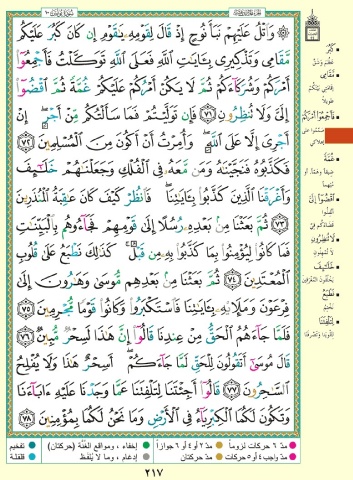 ۞ وَٱتْلُ عَلَيْهِمْ نَبَأَ نُوحٍ إِذْ قَالَ لِقَوْمِهِۦ يَٰقَوْمِ إِن كَانَ كَبُرَ عَلَيْكُم
مَّقَامِى وَتَذْكِيرِى بِـَٔايَٰتِ ٱللَّهِ فَعَلَى ٱللَّهِ تَوَكَّلْتُ فَأَجْمِعُوٓا۟
أَمْرَكُمْ وَشُرَكَآءَكُمْ ثُمَّ لَا يَكُنْ أَمْرُكُمْ عَلَيْكُمْ غُمَّةً ثُمَّ ٱقْضُوٓا۟
إِلَىَّ وَلَا تُنظِرُونِ ٧١ فَإِن تَوَلَّيْتُمْ فَمَا سَأَلْتُكُم مِّنْ أَجْرٍ إِنْ
أَجْرِىَ إِلَّا عَلَى ٱللَّهِ وَأُمِرْتُ أَنْ أَكُونَ مِنَ ٱلْمُسْلِمِينَ ٧٢
فَكَذَّبُوهُ فَنَجَّيْنَٰهُ وَمَن مَّعَهُۥ فِى ٱلْفُلْكِ وَجَعَلْنَٰهُمْ خَلَٰٓئِفَ
وَأَغْرَقْنَا ٱلَّذِينَ كَذَّبُوا۟ بِـَٔايَٰتِنَا فَٱنظُرْ كَيْفَ كَانَ عَٰقِبَةُ ٱلْمُنذَرِينَ
٧٣ ثُمَّ بَعَثْنَا مِنۢ بَعْدِهِۦ رُسُلًا إِلَىٰ قَوْمِهِمْ فَجَآءُوهُم بِٱلْبَيِّنَٰتِ
فَمَا كَانُوا۟ لِيُؤْمِنُوا۟ بِمَا كَذَّبُوا۟ بِهِۦ مِن قَبْلُ كَذَٰلِكَ نَطْبَعُ عَلَىٰ قُلُوبِ
ٱلْمُعْتَدِينَ ٧٤ ثُمَّ بَعَثْنَا مِنۢ بَعْدِهِم مُّوسَىٰ وَهَٰرُونَ إِلَىٰ
فِرْعَوْنَ وَمَلَإِي۟هِۦ بِـَٔايَٰتِنَا فَٱسْتَكْبَرُوا۟ وَكَانُوا۟ قَوْمًا مُّجْرِمِينَ ٧٥
فَلَمَّا جَآءَهُمُ ٱلْحَقُّ مِنْ عِندِنَا قَالُوٓا۟ إِنَّ هَٰذَا لَسِحْرٌ مُّبِينٌ ٧٦
قَالَ مُوسَىٰٓ أَتَقُولُونَ لِلْحَقِّ لَمَّا جَآءَكُمْ أَسِحْرٌ هَٰذَا وَلَا يُفْلِحُ
ٱلسَّٰحِرُونَ ٧٧ قَالُوٓا۟ أَجِئْتَنَا لِتَلْفِتَنَا عَمَّا وَجَدْنَا عَلَيْهِ ءَابَآءَنَا
وَتَكُونَ لَكُمَا ٱلْكِبْرِيَآءُ فِى ٱلْأَرْضِ وَمَا نَحْنُ لَكُمَا بِمُؤْمِنِينَ ٧٨
كَبُرَ
مَقَامِى
غُمَّةً
لَا تُنظِرُونِ
خَلَٰٓئِفَ
نَطْبَعُ
لِتَلْفِتَنَا
مدّ ٦ حركات لزوماً مدّ ٢ أو ٤ أو ٦ جوازاً إخفاء ، ومواقع الغُنَّة (حركتان) تفخيم
مدّ واجب ٤ أو ٥ حركات مدّ حركتان إدغام ، وما لا يُلفَظ قلقلة
٢١٧